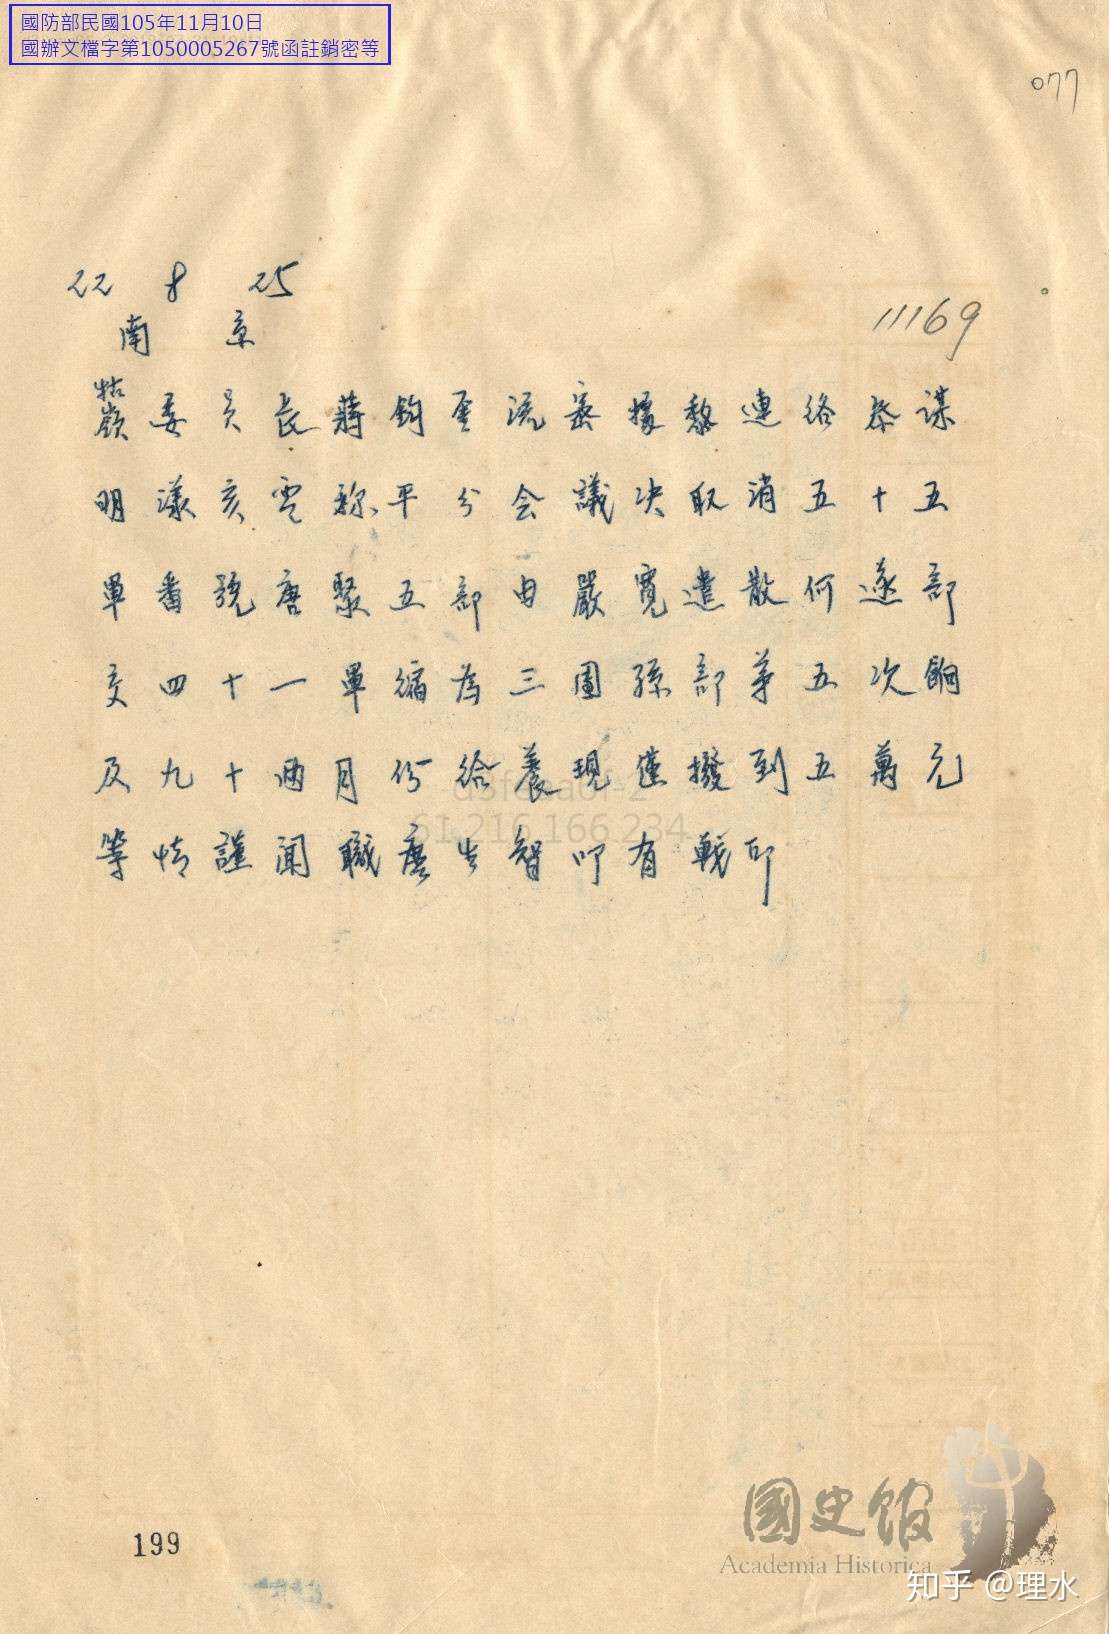 國防部民國105年11月10日
國辦文檔字第1050005267號函註銷密等
077
22 8 25
11169
南 京
牯嶺委員長蔣鈞鑒流密據黎連絡參謀
明漾亥電称平分会議决取消五十五
軍番號唐聚五部由嚴寬遣散何遂部
交四十一軍編為三團孫部第五次餉
及九十两月份给養現僅撥到五萬元
等情謹聞職唐生智叩有戟印
61.216.166.234
199
國史館
Academia Historica
知乎 @理水